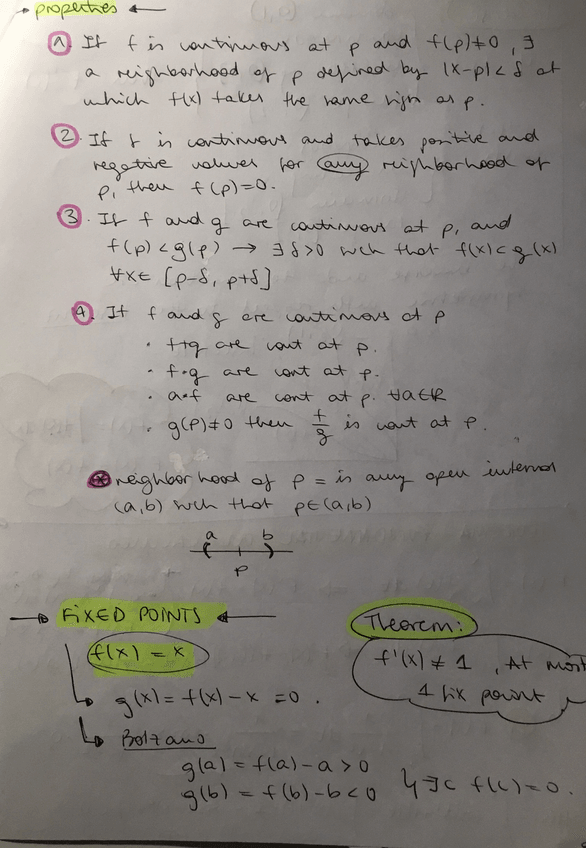 → properties ←
1. If f is continuous at p and f(p)≠0, ∃
a neighborhood of p defined by |x-p|<δ at
which f(x) takes the same sign as p.
2. If f is continuous and takes positive and
negative values for any neighborhood of
p, then f(p)=0.
3. If f and g are continuous at p, and
f(p)<g(p) → ∃δ>0 such that f(x)<g(x)
∀x∈ [p-δ, p+δ]
4. If f and g are continuous at p
· f+g are cont at p.
· f·g are cont at p.
· a·f are cont at p. ∀a∈ℝ
· g(p)≠0 then f/g is cont at p.
* neighborhood of p = is any open interval
(a,b) such that p∈(a,b)
a b
p
→ FIXED POINTS ←
f(x) = x
g(x) = f(x) - x = 0.
Bolzano
g(a) = f(a) - a > 0
g(b) = f(b) - b < 0 ↳ ∃c f(c)=0.
Theorem:
f'(x) ≠ 1, At most
1 fix point